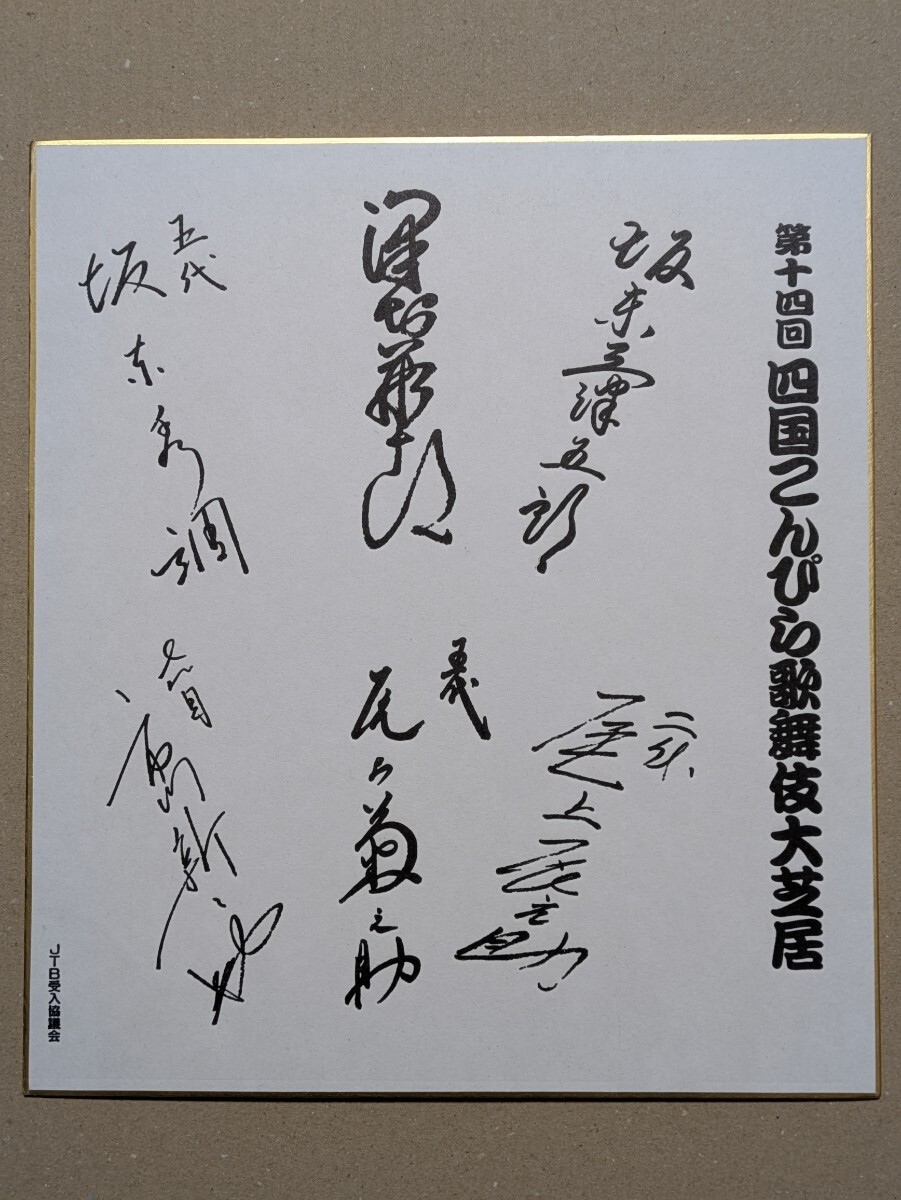 第十四回 四国こんぴら歌舞伎大芝居
坂東三津五郎
二代
尾上辰之助
澤村藤十郎
五代
尾上菊之助
五代
坂東秀調
JTB受入協議会